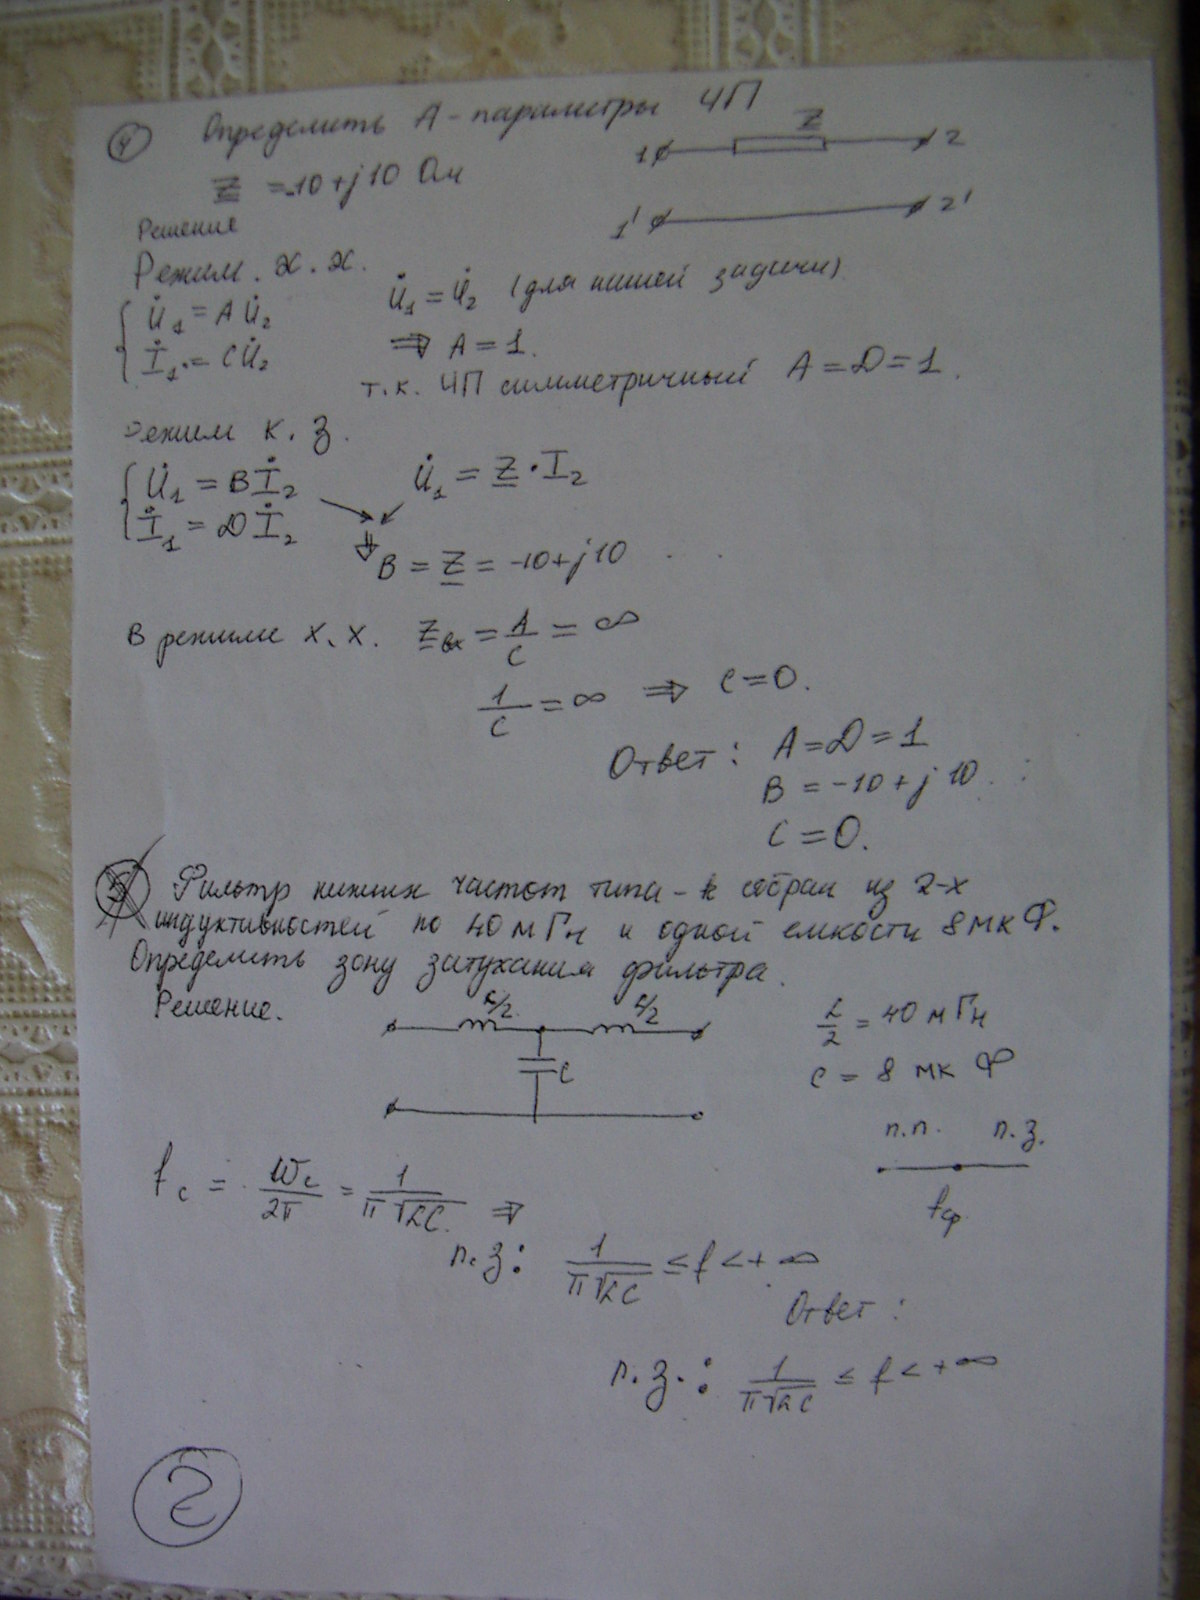 4 Определить А-параметры ЧП
Z
1 2
1' 2'
Z = -10+j10 Ом
Решение
Режим х.х.
U̇₁ = A U̇₂
İ₁ = C U̇₂
U̇₁ = U̇₂ (для нашей задачи)
⇒ A = 1.
т.к. ЧП симметричный A = D = 1.
Режим к.з.
U̇₁ = B İ₂
İ₁ = D İ₂
U̇₁ = Z · I₂
⇓
B = Z = -10+j10
В режиме х.х. Zвх = A/C = ∞
1/C = ∞ ⇒ C = 0.
Ответ: A = D = 1
B = -10 + j10
C = 0.
5 Фильтр нижних частот типа - k собран из 2-х
индуктивностей по 40 мГн и одной емкости 8 мкФ.
Определить зону затухания фильтра.
Решение.
L/2 L/2
C
L/2 = 40 мГн
C = 8 мкФ
п.п. п.з.
fср
fc = Wc/2π = 1/π√LC ⇒
п.з: 1/π√LC ≤ f < +∞
Ответ:
п.з.: 1/π√LC ≤ f < +∞
2